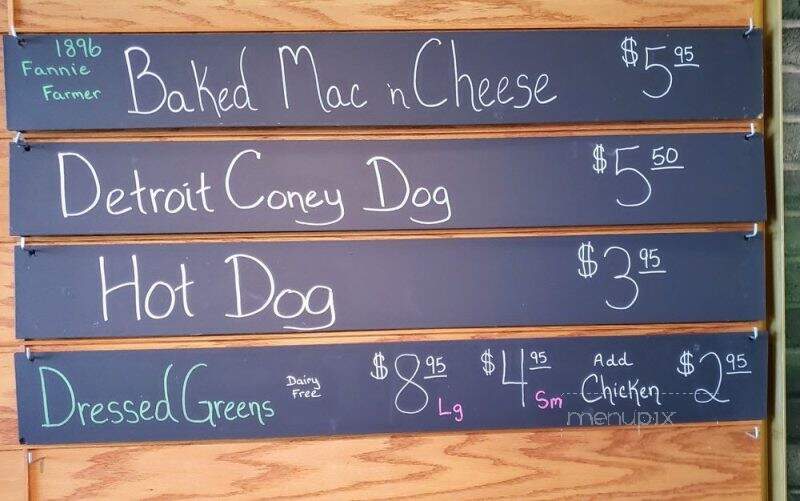 1896 Fannie Farmer Baked Mac n Cheese $5 95
Detroit Coney Dog $5 50
Hot Dog $3 95
Dressed Greens Dairy Free $8 95 Lg $4 95 Sm Add Chicken $2 95
menupix